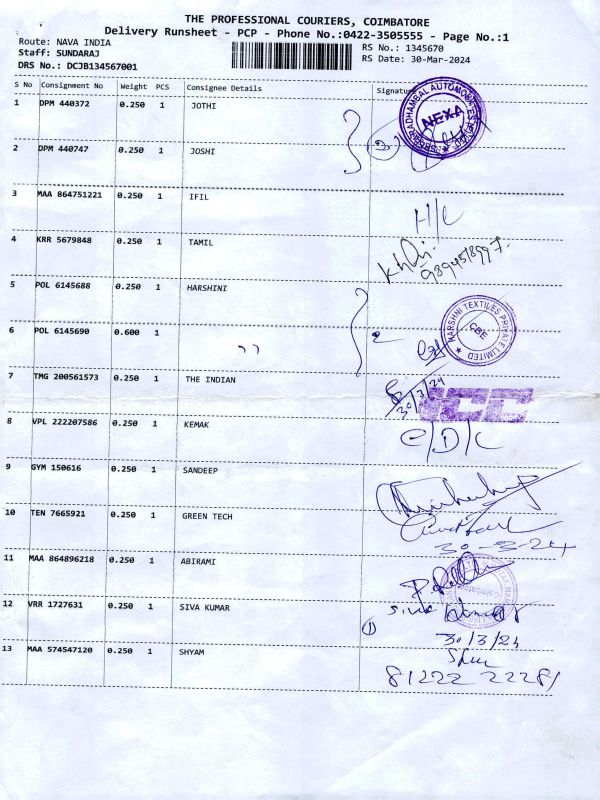 THE PROFESSIONAL COURIERS, COIMBATORE
Delivery Runsheet - PCP - Phone No.:0422-3505555 - Page No.:1
Route: NAVA INDIA RS No.: 1345670
Staff: SUNDARAJ RS Date: 30-Mar-2024
DRS No.: DCJB134567001
S No Consignment No Weight PCS Consignee Details Signature
1 DPM 440372 0.250 1 JOTHI
NEXA
2 DPM 440747 0.250 1 JOSHI
3 MAA 864751221 0.250 1 IFIL
H/C
4 KRR 5679848 0.250 1 TAMIL
5 POL 6145688 0.250 1 HARSHINI
HARSHNI TEXTILES PRIVATE LIMITED
CBE
6 POL 6145690 0.600 1 ,,
7 TMG 200561573 0.250 1 THE INDIAN
30/3/24
8 VPL 222207586 0.250 1 KEMAK
C/D/C
9 GYM 150616 0.250 1 SANDEEP
10 TEN 7665921 0.250 1 GREEN TECH
30-3-24
11 MAA 864896218 0.250 1 ABIRAMI
Coimbatore
12 VRR 1727631 0.250 1 SIVA KUMAR
Siva Kumar
① 30/3/24
13 MAA 574547120 0.250 1 SHYAM
81222 22281